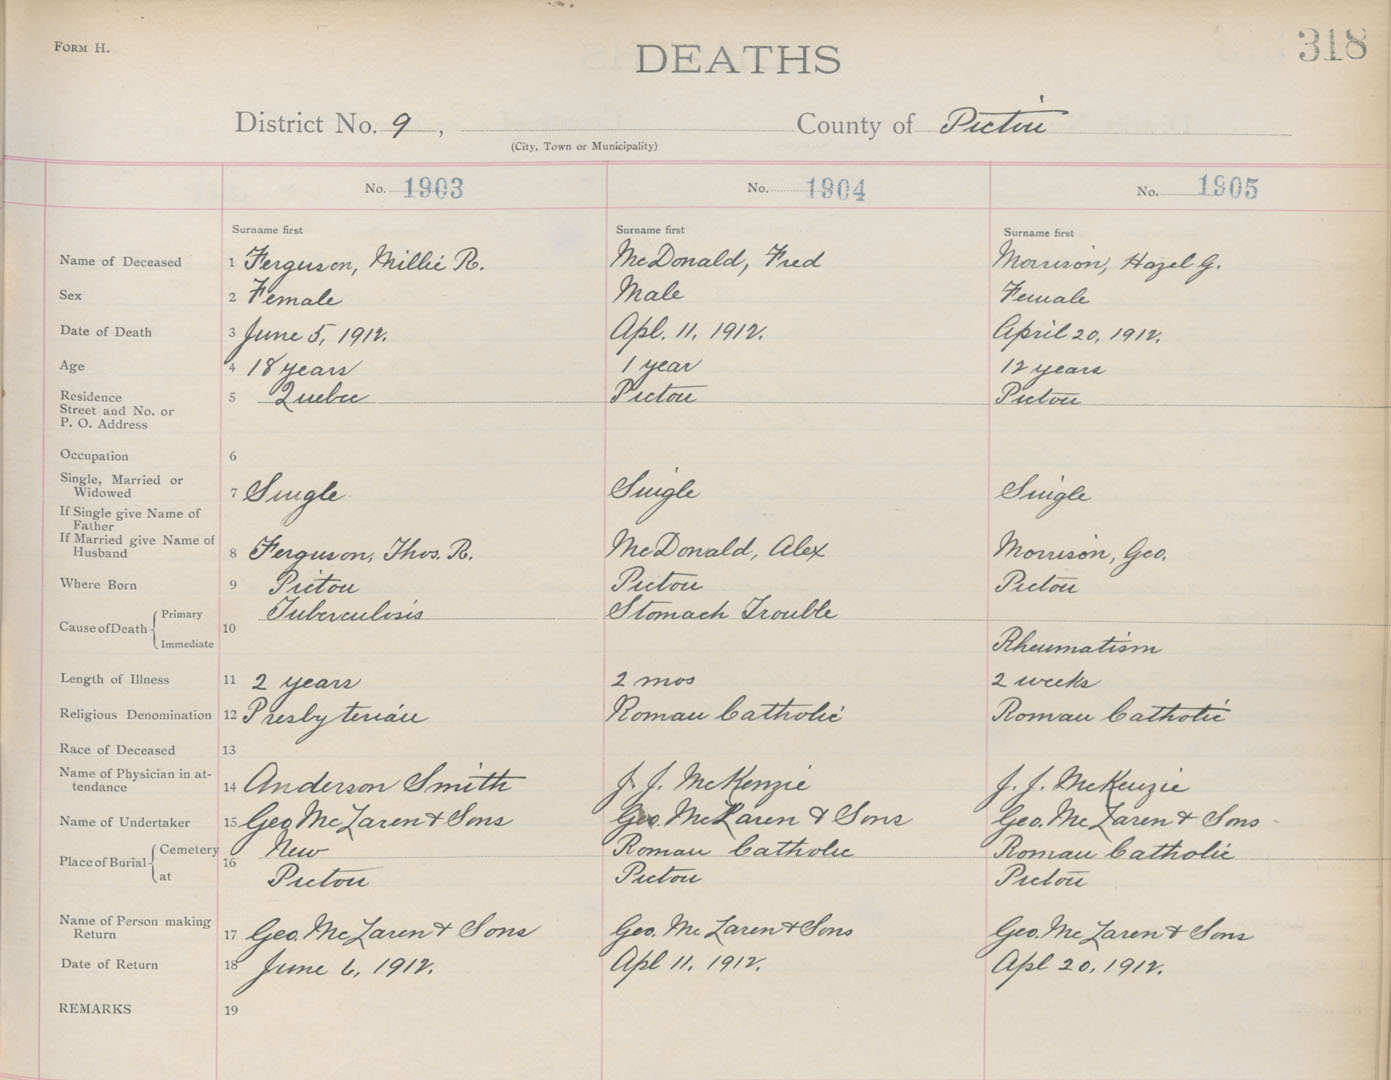 FORM H.
DEATHS
318
District No. 9, County of Pictou
(City, Town or Municipality)
No. 1903 No. 1904 No. 1905
Surname first Surname first Surname first
Name of Deceased 1 Ferguson, Millie R. McDonald, Fred Morrison, Hazel G.
Sex 2 Female Male Female
Date of Death 3 June 5, 1912. Apl. 11, 1912. April 20, 1912.
Age 4 18 years 1 year 12 years
Residence 5 Quebec Pictou Pictou
Street and No. or
P. O. Address
Occupation 6
Single, Married or
Widowed 7 Single Single Single
If Single give Name of
Father
If Married give Name of
Husband 8 Ferguson, Thos. R. McDonald, Alex Morrison, Geo.
Where Born 9 Pictou Pictou Pictou
Cause of Death 10 Primary Tuberculosis Stomach Trouble
Immediate Rheumatism
Length of Illness 11 2 years 2 mos 2 weeks
Religious Denomination 12 Presbyterian Roman Catholic Roman Catholic
Race of Deceased 13
Name of Physician in at-
tendance 14 Anderson Smith J. J. McKenzie J. J. McKenzie
Name of Undertaker 15 Geo. McLaren & Sons Geo. McLaren & Sons Geo. McLaren & Sons
Place of Burial 16 Cemetery New Roman Catholic Roman Catholic
at Pictou Pictou Pictou
Name of Person making
Return 17 Geo. McLaren & Sons Geo. McLaren & Sons Geo. McLaren & Sons
Date of Return 18 June 6, 1912. Apl 11, 1912. Apl 20, 1912.
REMARKS 19